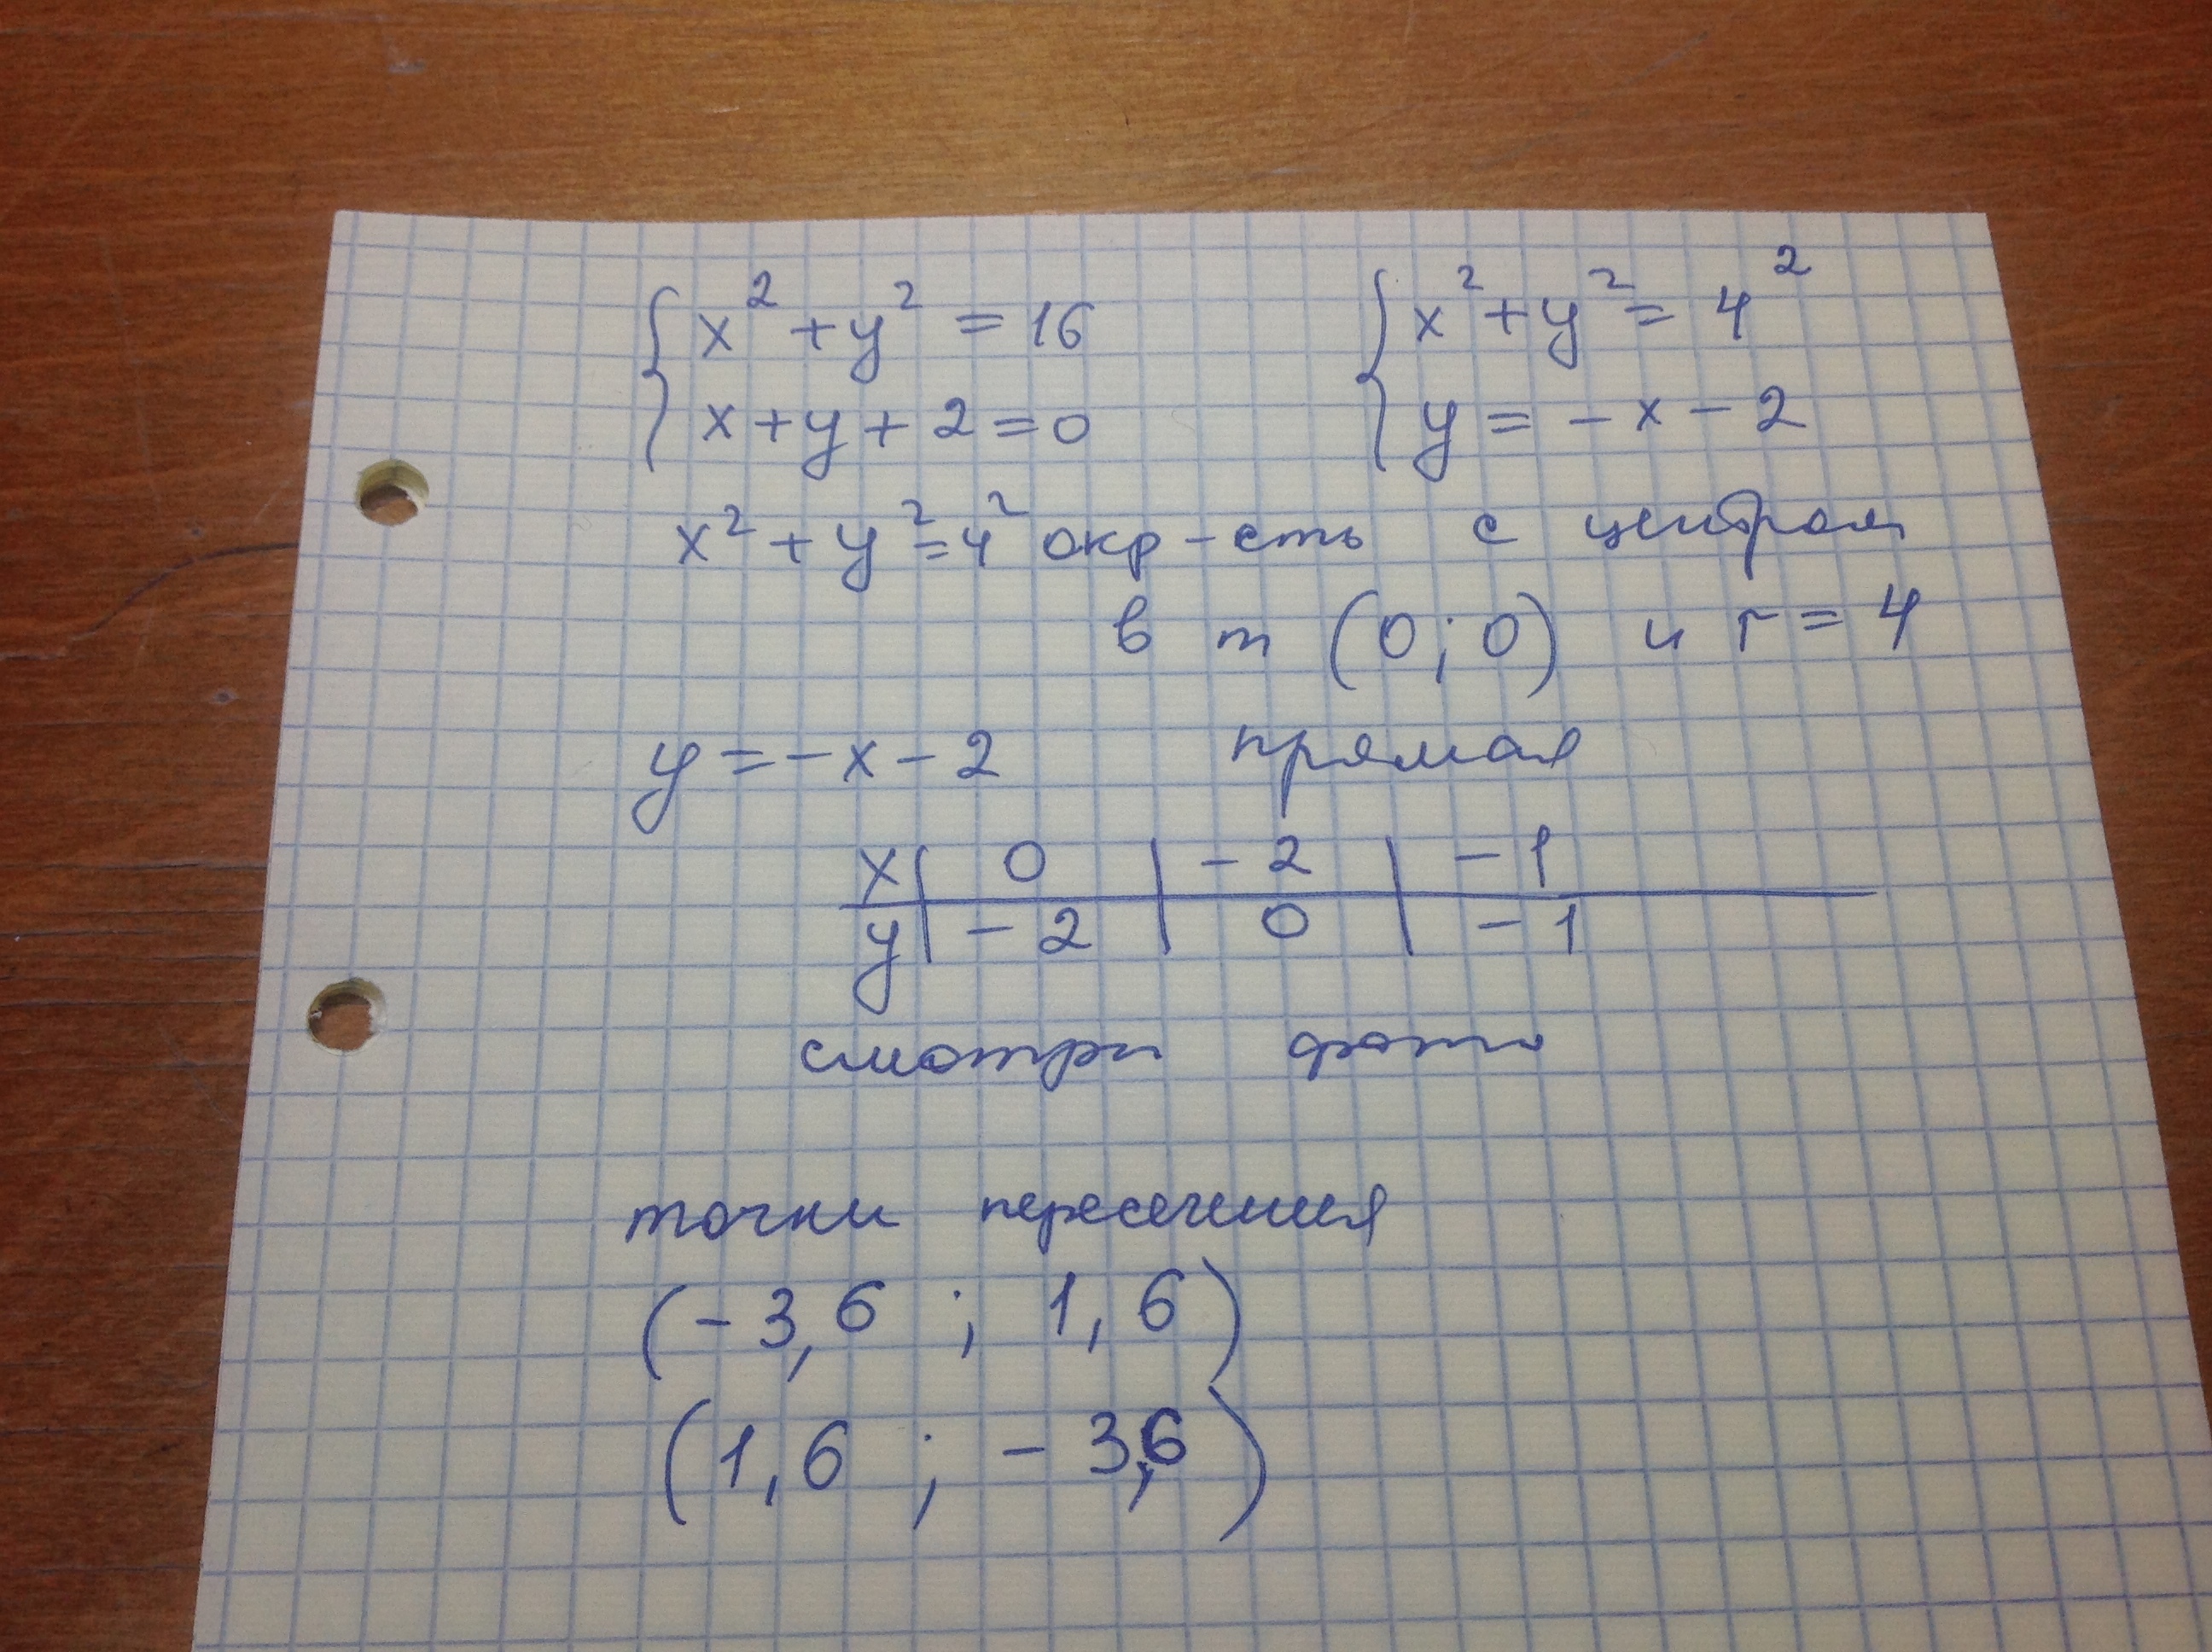 { x² + y² = 16
x + y + 2 = 0
{ x² + y² = 4²
y = - x - 2
x² + y² = 4² окр-сть с центром
в т (0; 0) и r = 4
y = - x - 2 прямая
x | 0 | - 2 | - 1
y | - 2 | 0 | - 1
смотри фото
точки пересечения
(- 3,6 ; 1,6)
(1,6 ; - 3,6)